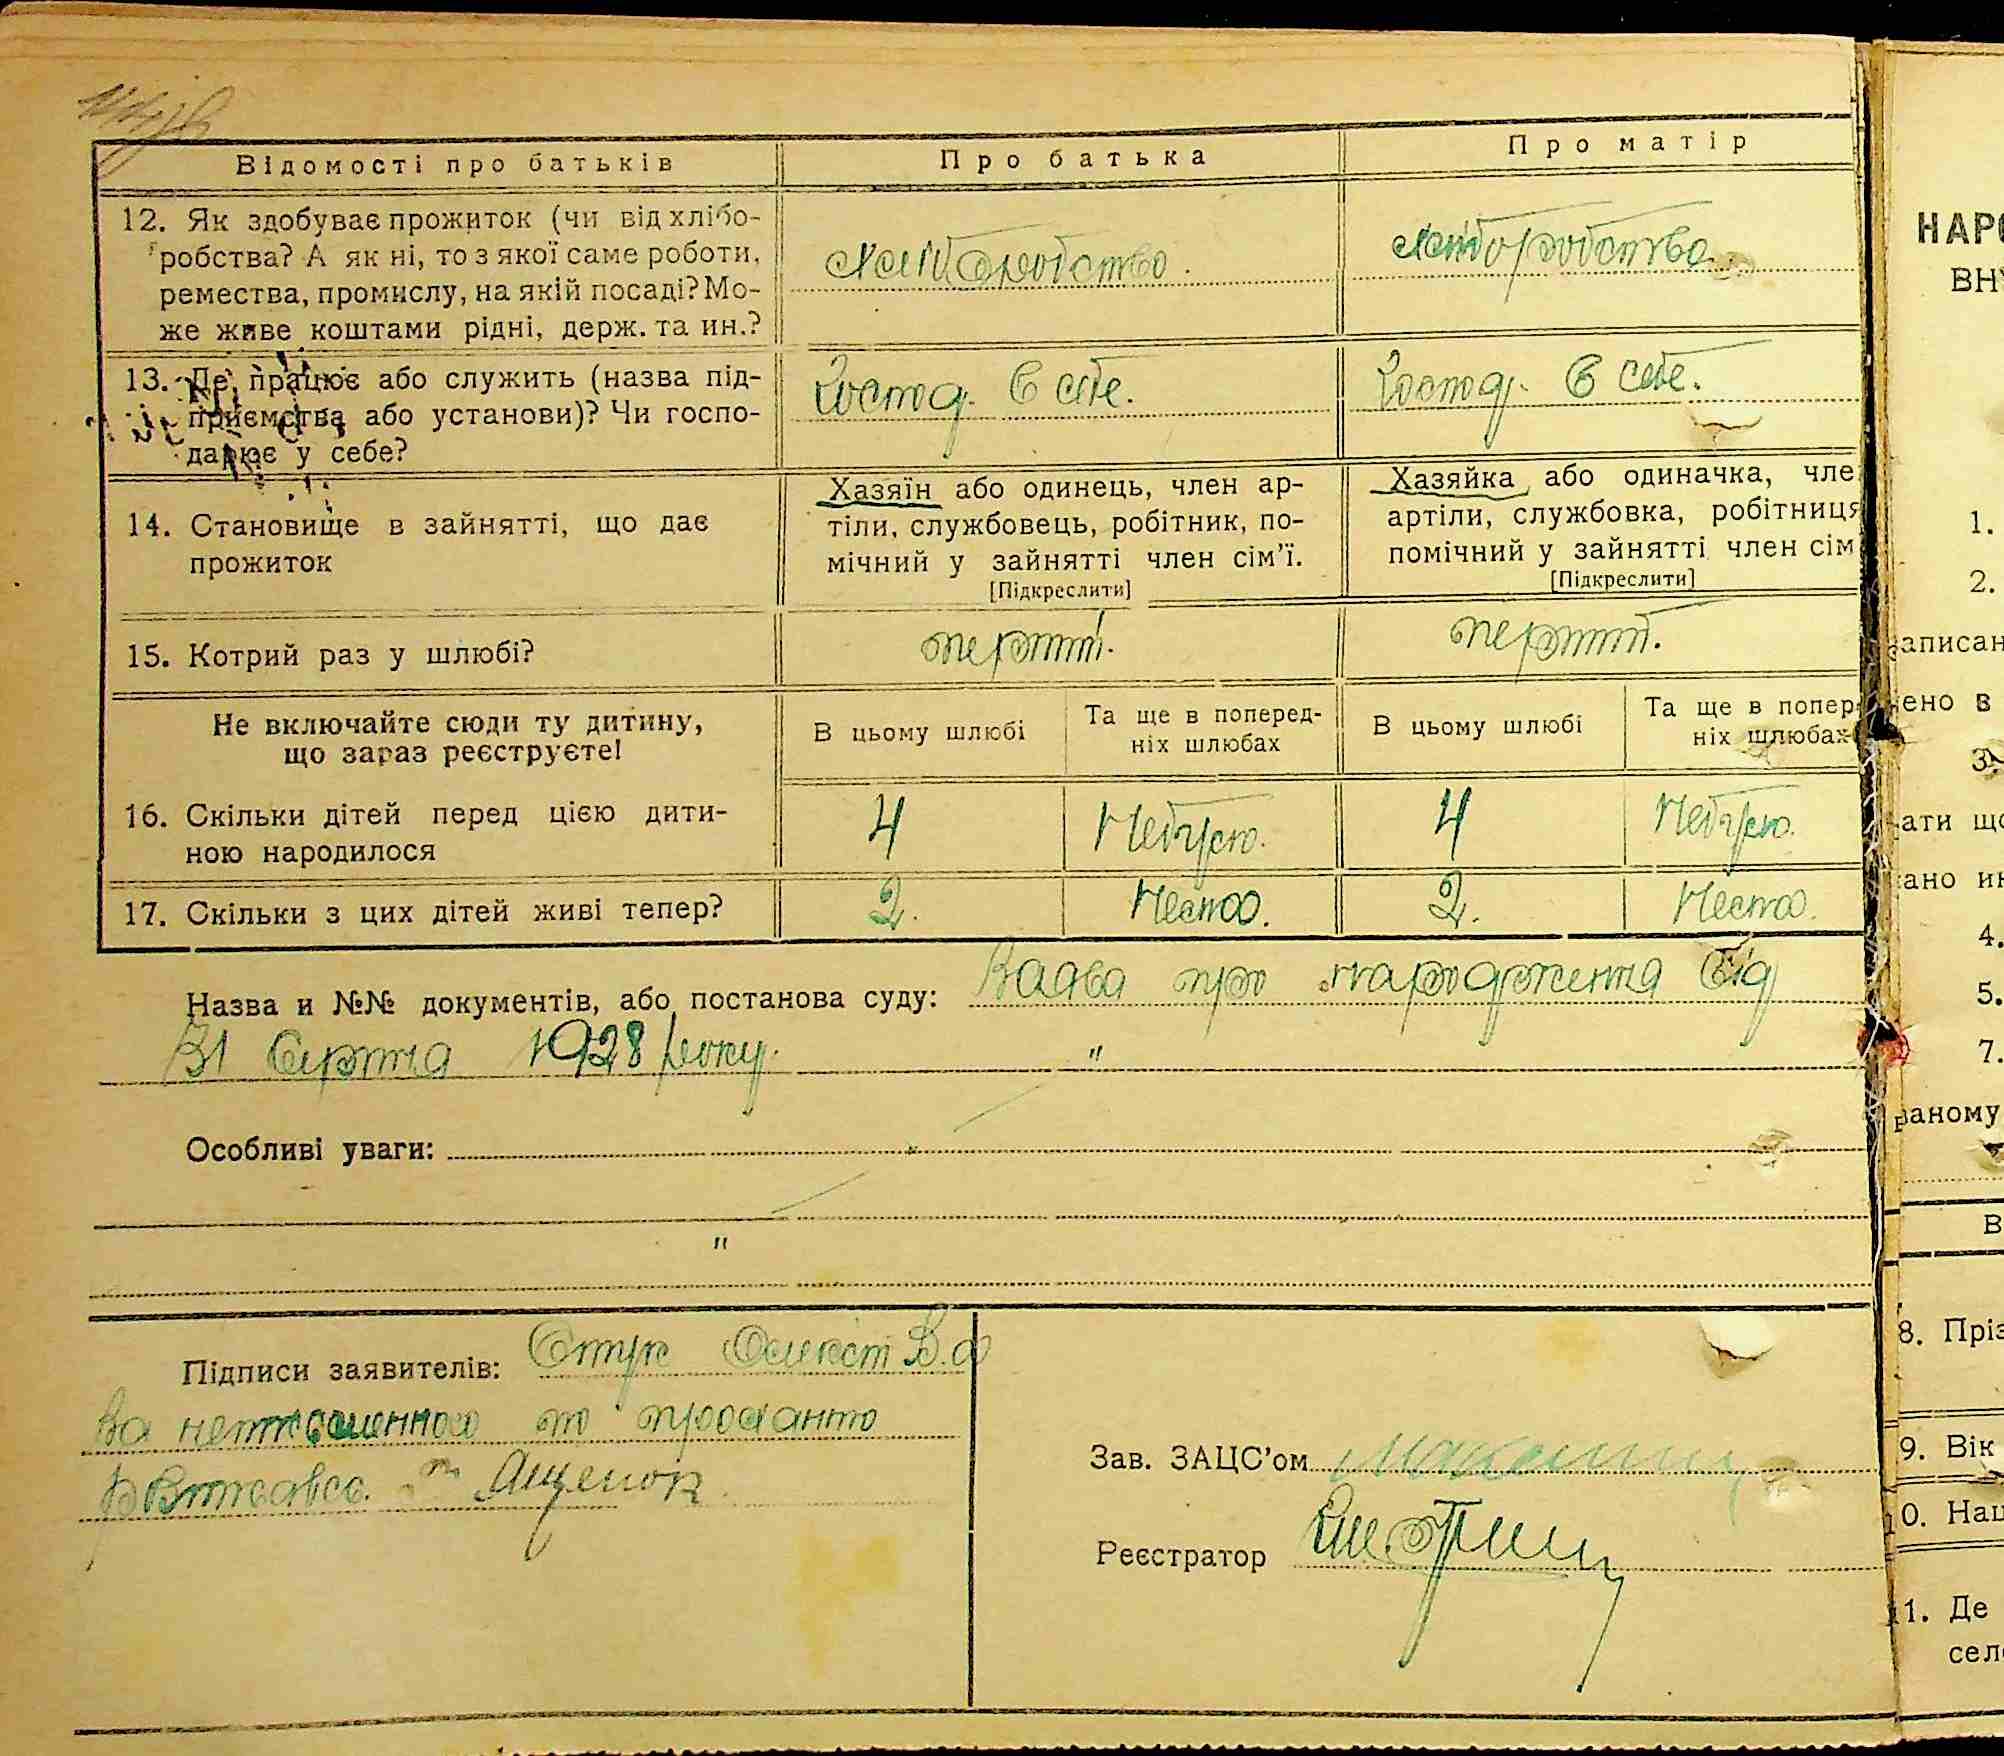 Відомості про батьків
Про батька
Про матір
12. Як здобуває прожиток (чи від хлібо-
робства? А як ні, то з якої саме роботи,
ремества, промислу, на якій посаді? Мо-
же живе коштами рідні, держ. та ин.?
хліборобство.
хліборобство
13. Де працює або служить (назва під-
приємства або установи)? Чи госпо-
дарює у себе?
Господ. в себе.
Господ. в себе.
14. Становище в зайнятті, що дає
прожиток
Хазяїн або одинець, член ар-
тіли, службовець, робітник, по-
мічний у зайнятті член сім'ї.
[Підкреслити]
Хазяйка або одиначка, чле
артіли, службовка, робітниця
помічний у зайнятті член сім
[Підкреслити]
15. Котрий раз у шлюбі?
перший.
перший.
Не включайте сюди ту дитину,
що зараз реєструєте!
В цьому шлюбі
Та ще в поперед-
ніх шлюбах
В цьому шлюбі
Та ще в попер
ніх шлюбах
16. Скільки дітей перед цією дити-
ною народилося
4
Небуло.
4
Небуло.
17. Скільки з цих дітей живі тепер?
2.
2.
Назва и №№ документів, або постанова суду: Заява про народження від
31 Серпня 1928 року.
"
Особливі уваги:
"
Підписи заявителів: Стук
За неписьменного по проханню
Ященок
Зав. ЗАЦС'ом
Реєстратор
НАРО
ВН
1.
2.
записан
чено в
3.
ати що
ано ин
4.
5.
7.
ваному
В
8. Пріз
9. Вік
10. Нац
11. Де
сел